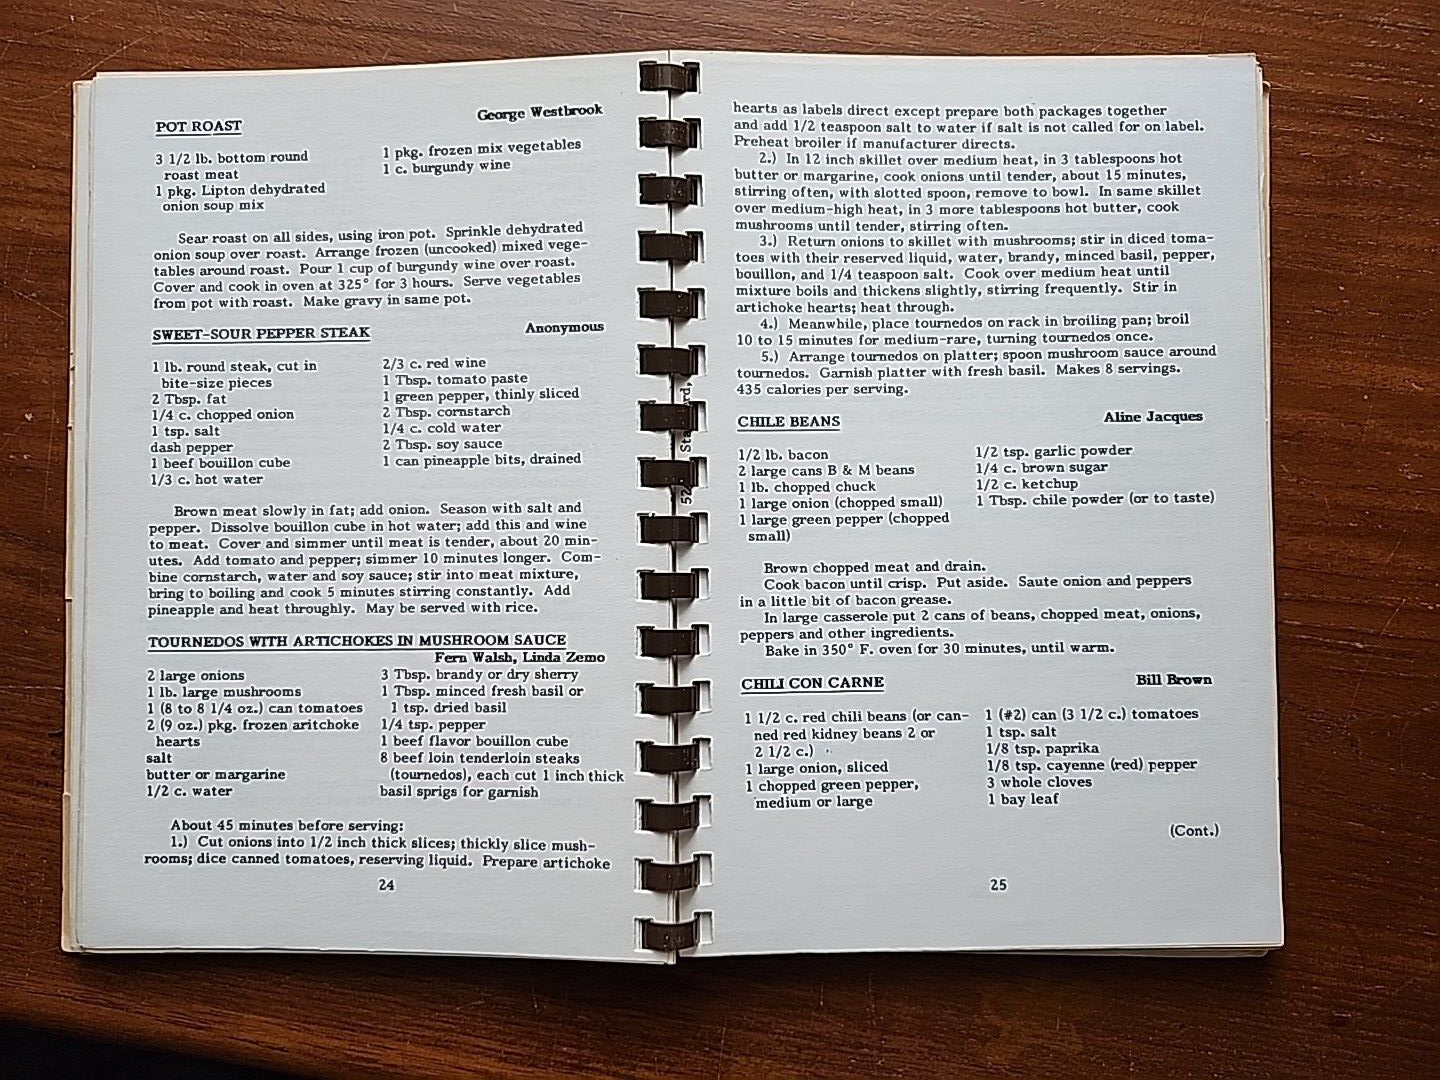 POT ROAST
George Westbrook
3 1/2 lb. bottom round
roast meat
1 pkg. Lipton dehydrated
onion soup mix
1 pkg. frozen mix vegetables
1 c. burgundy wine
Sear roast on all sides, using iron pot. Sprinkle dehydrated
onion soup over roast. Arrange frozen (uncooked) mixed vege-
tables around roast. Pour 1 cup of burgundy wine over roast.
Cover and cook in oven at 325° for 3 hours. Serve vegetables
from pot with roast. Make gravy in same pot.
SWEET-SOUR PEPPER STEAK
Anonymous
1 lb. round steak, cut in
bite-size pieces
2 Tbsp. fat
1/4 c. chopped onion
1 tsp. salt
dash pepper
1 beef bouillon cube
1/3 c. hot water
2/3 c. red wine
1 Tbsp. tomato paste
1 green pepper, thinly sliced
2 Tbsp. cornstarch
1/4 c. cold water
2 Tbsp. soy sauce
1 can pineapple bits, drained
Brown meat slowly in fat; add onion. Season with salt and
pepper. Dissolve bouillon cube in hot water; add this and wine
to meat. Cover and simmer until meat is tender, about 20 min-
utes. Add tomato and pepper; simmer 10 minutes longer. Com-
bine cornstarch, water and soy sauce; stir into meat mixture,
bring to boiling and cook 5 minutes stirring constantly. Add
pineapple and heat throughly. May be served with rice.
TOURNEDOS WITH ARTICHOKES IN MUSHROOM SAUCE
Fern Walsh, Linda Zemo
2 large onions
1 lb. large mushrooms
1 (8 to 8 1/4 oz.) can tomatoes
2 (9 oz.) pkg. frozen aritchoke
hearts
salt
butter or margarine
1/2 c. water
3 Tbsp. brandy or dry sherry
1 Tbsp. minced fresh basil or
1 tsp. dried basil
1/4 tsp. pepper
1 beef flavor bouillon cube
8 beef loin tenderloin steaks
(tournedos), each cut 1 inch thick
basil sprigs for garnish
About 45 minutes before serving:
1.) Cut onions into 1/2 inch thick slices; thickly slice mush-
rooms; dice canned tomatoes, reserving liquid. Prepare artichoke
24
hearts as labels direct except prepare both packages together
and add 1/2 teaspoon salt to water if salt is not called for on label.
Preheat broiler if manufacturer directs.
2.) In 12 inch skillet over medium heat, in 3 tablespoons hot
butter or margarine, cook onions until tender, about 15 minutes,
stirring often, with slotted spoon, remove to bowl. In same skillet
over medium-high heat, in 3 more tablespoons hot butter, cook
mushrooms until tender, stirring often.
3.) Return onions to skillet with mushrooms; stir in diced toma-
toes with their reserved liquid, water, brandy, minced basil, pepper,
bouillon, and 1/4 teaspoon salt. Cook over medium heat until
mixture boils and thickens slightly, stirring frequently. Stir in
artichoke hearts; heat through.
4.) Meanwhile, place tournedos on rack in broiling pan; broil
10 to 15 minutes for medium-rare, turning tournedos once.
5.) Arrange tournedos on platter; spoon mushroom sauce around
tournedos. Garnish platter with fresh basil. Makes 8 servings.
435 calories per serving.
CHILE BEANS
Aline Jacques
1/2 lb. bacon
2 large cans B & M beans
1 lb. chopped chuck
1 large onion (chopped small)
1 large green pepper (chopped
small)
1/2 tsp. garlic powder
1/4 c. brown sugar
1/2 c. ketchup
1 Tbsp. chile powder (or to taste)
Brown chopped meat and drain.
Cook bacon until crisp. Put aside. Saute onion and peppers
in a little bit of bacon grease.
In large casserole put 2 cans of beans, chopped meat, onions,
peppers and other ingredients.
Bake in 350° F. oven for 30 minutes, until warm.
CHILI CON CARNE
Bill Brown
1 1/2 c. red chili beans (or can-
ned red kidney beans 2 or
2 1/2 c.)
1 large onion, sliced
1 chopped green pepper,
medium or large
1 (#2) can (3 1/2 c.) tomatoes
1 tsp. salt
1/8 tsp. paprika
1/8 tsp. cayenne (red) pepper
3 whole cloves
1 bay leaf
(Cont.)
25